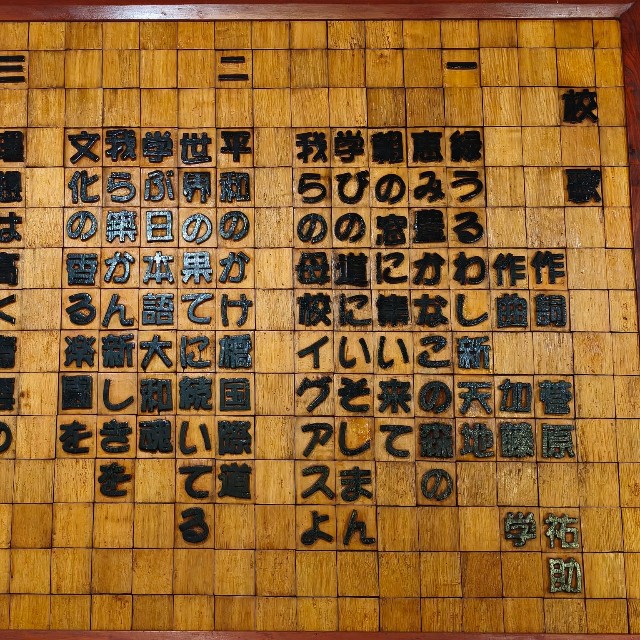 校歌
作詞 菅原祐助
作曲 加藤学
一
緑うるわし新天地
恵み豊かなこの森の
朝の窓に集い来て
学びの道にいそしまん
我らの母校イヴアスよ
二
平和のかけ橋国際道
世界の果てに続いている
学ぶ日本語大和魂
我ら築かん新しき を
文化の香る楽園を
三
理想は高く